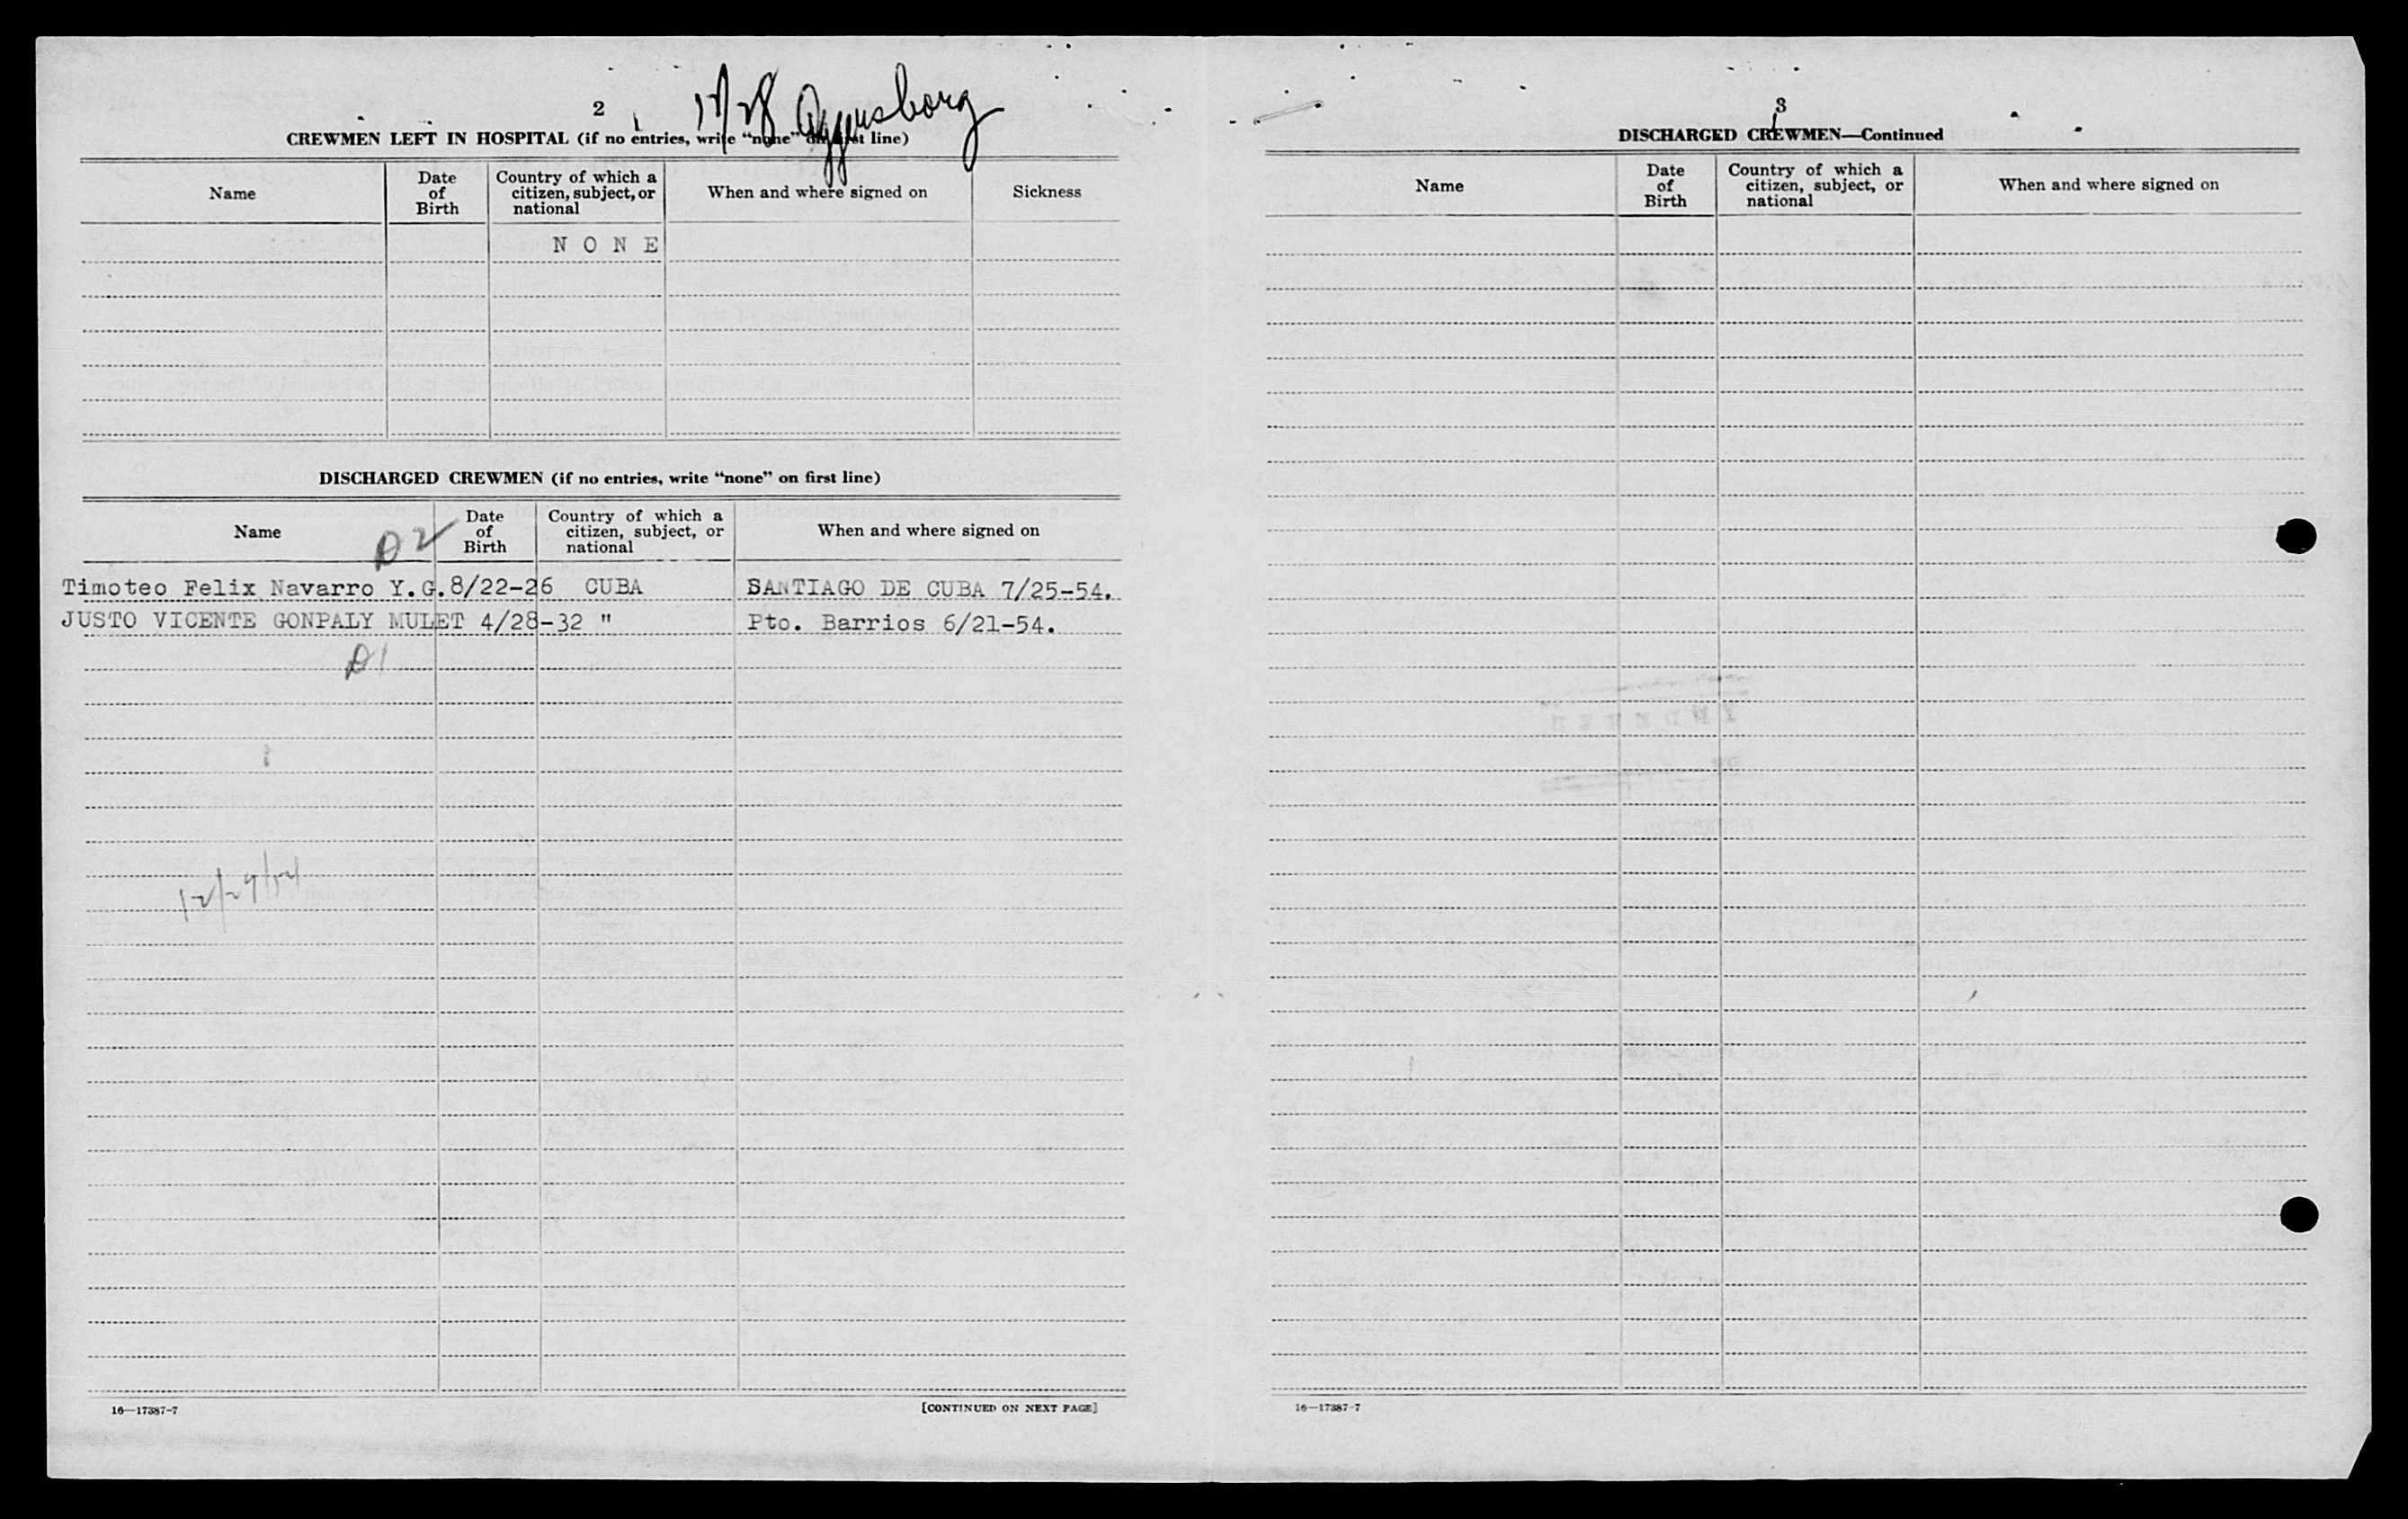 2
12/28 Aggersborg
CREWMEN LEFT IN HOSPITAL (if no entries, write "none" on first line)
Name
Date of Birth
Country of which a citizen, subject, or national
When and where signed on
Sickness
N O N E
DISCHARGED CREWMEN (if no entries, write "none" on first line)
Name
Date of Birth
Country of which a citizen, subject, or national
When and where signed on
D2
Timoteo Felix Navarro Y.G. 8/22-26 CUBA SANTIAGO DE CUBA 7/25-54.
JUSTO VICENTE GONPALY MULET 4/28-32 " Pto. Barrios 6/21-54.
D1
12/29/54
16—17387-7
[CONTINUED ON NEXT PAGE]
3
DISCHARGED CREWMEN—Continued
Name
Date of Birth
Country of which a citizen, subject, or national
When and where signed on
16—17387-7